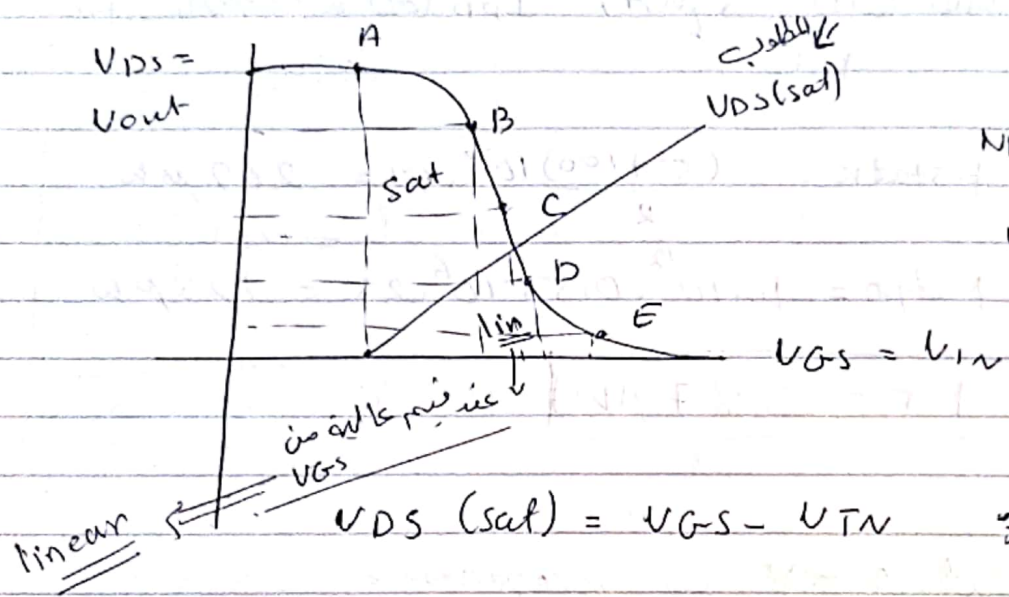 A
VDS =
Vout
المطلوب
VDS(sat)
B
sat
C
D
E
lin
VGS = VIN
عند قيم عالية من
VGS
linear
VDS (sat) = VGS - VTN